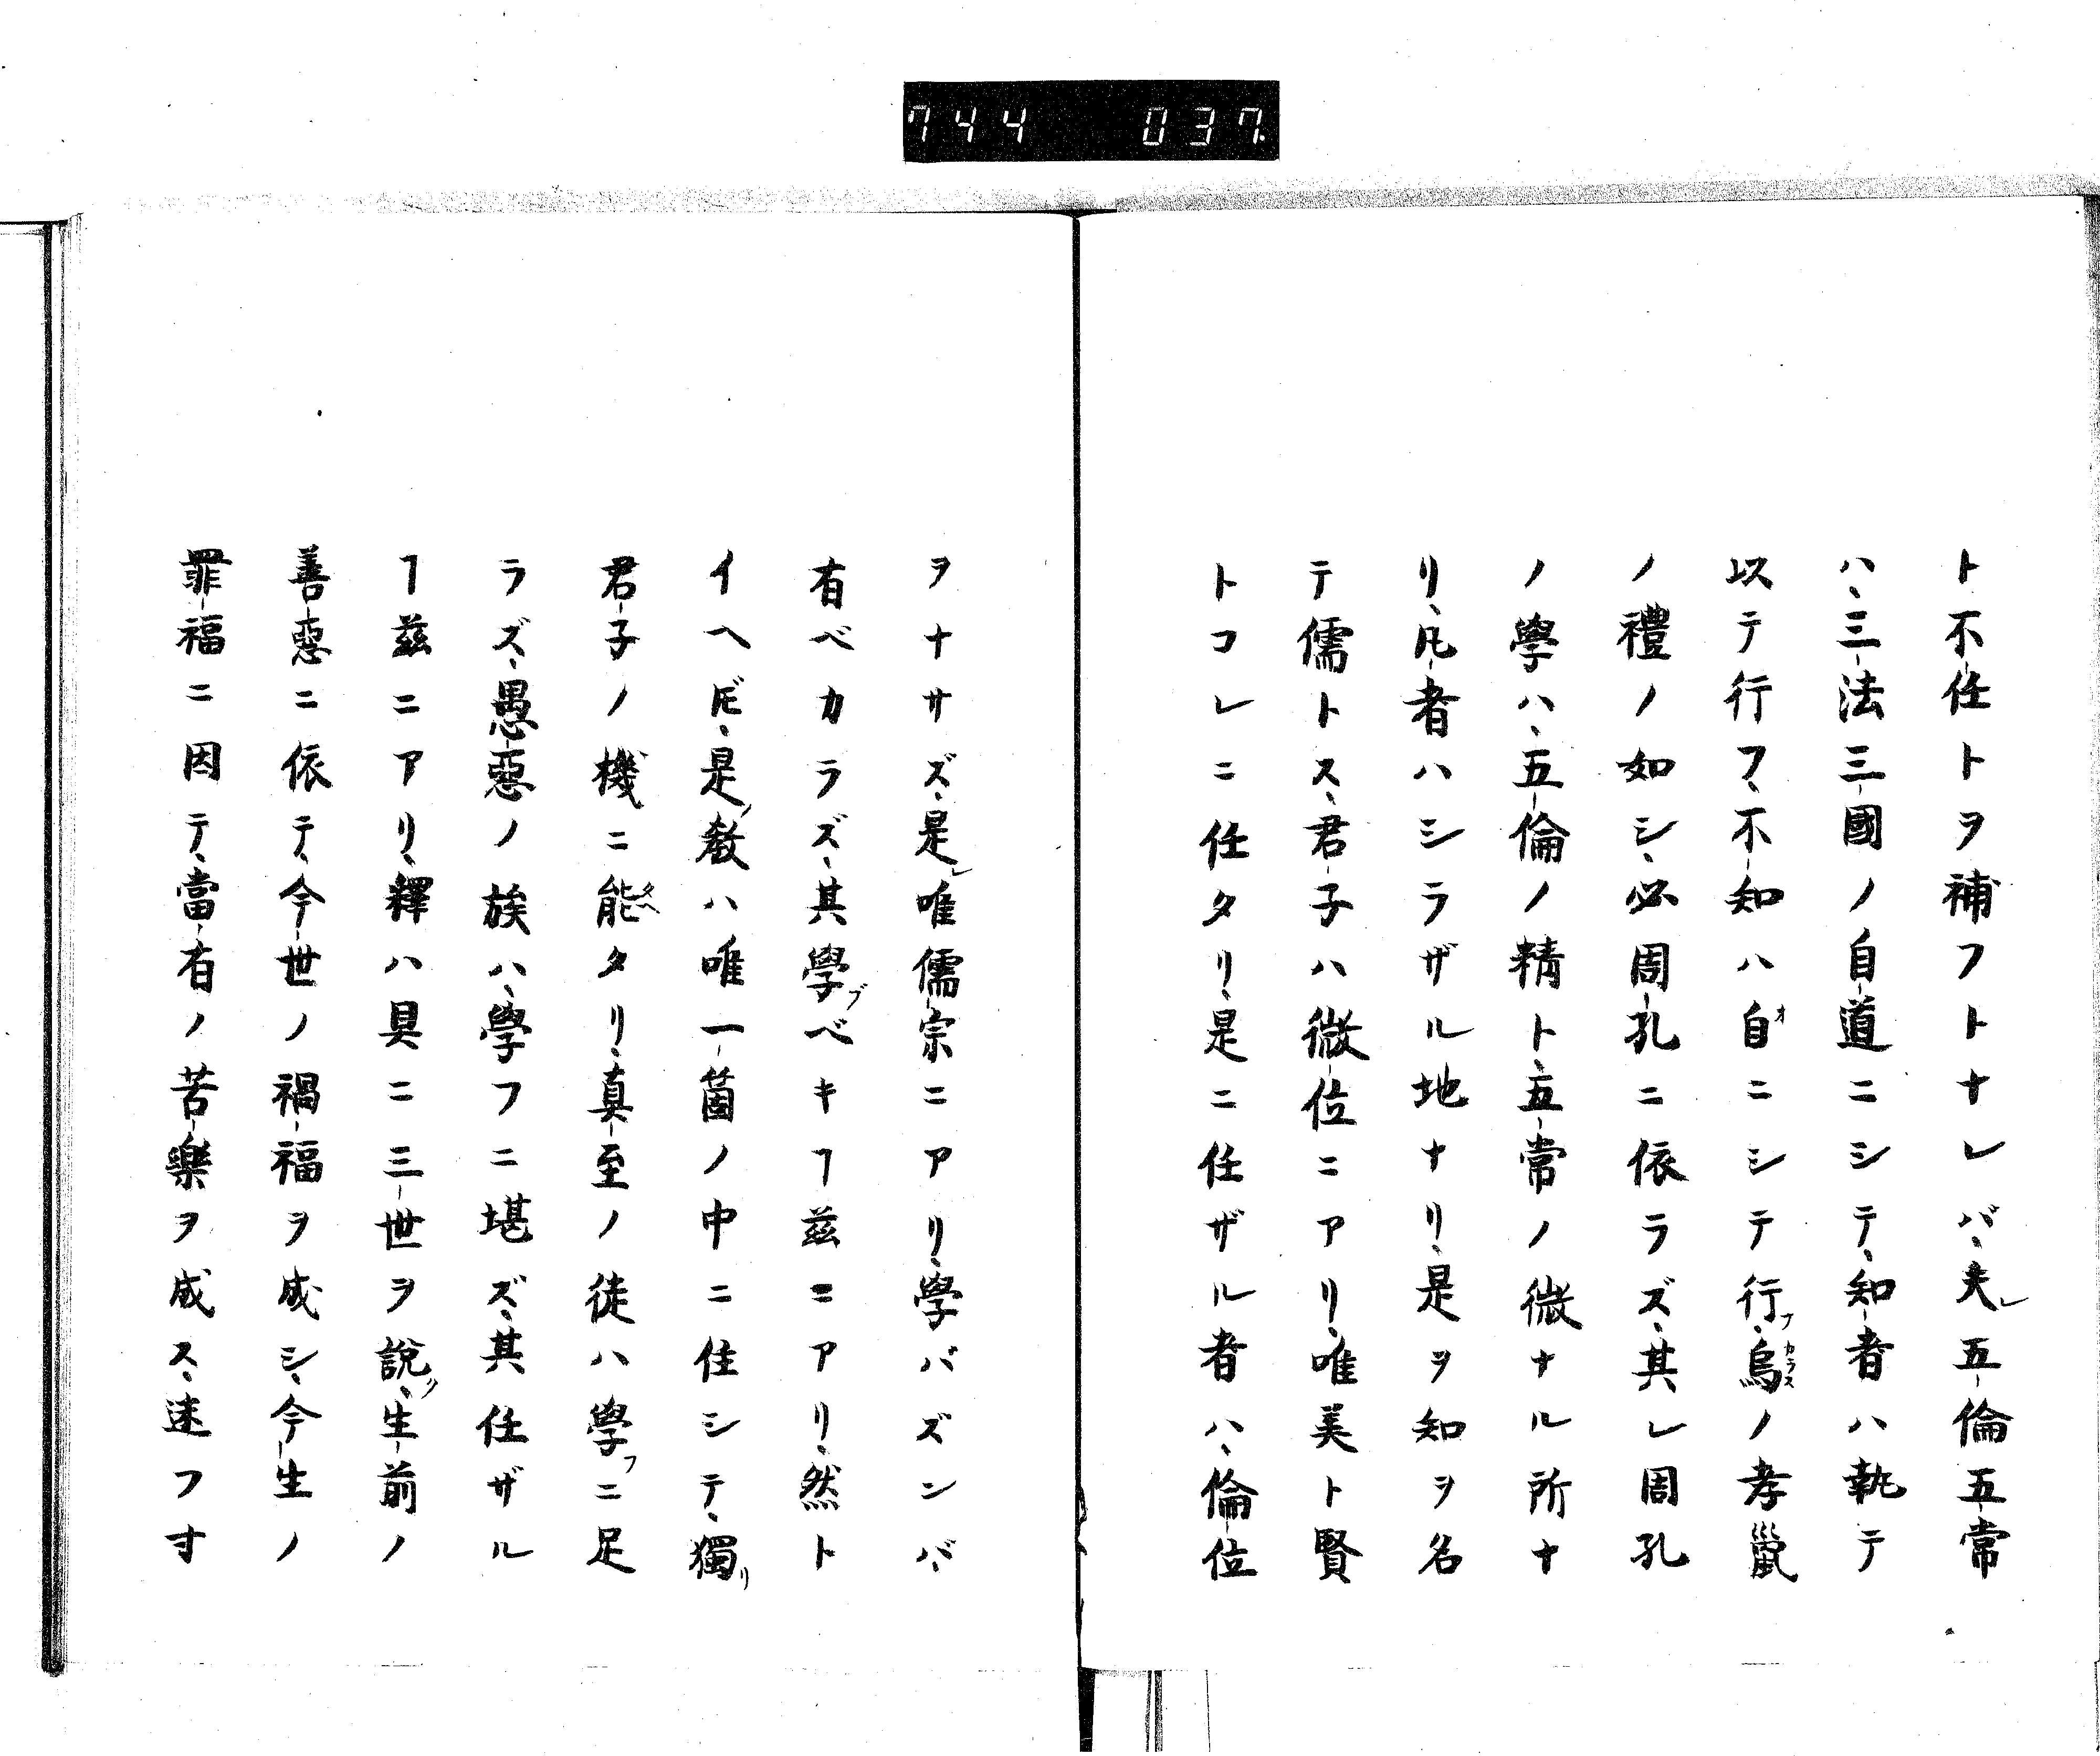 744 037
ト不任トヲ補フトナレバ、夫レ五倫五常
ハ、三法三國ノ自道ニシテ、知者ハ執テ
以テ行フ、不知ハ自オニシテ行フ、烏カラスノ孝
ノ禮ノ如シ、必周孔ニ依ラズ、其レ周孔
ノ學ハ、五倫ノ精ト、五常ノ微ナル所ナ
リ、凡者ハシラザル地ナリ、是ヲ知ヲ名
テ儒トス、君子ハ微位ニアリ、唯美ト賢
トコレニ任タリ、是ニ任ザル者ハ、倫位
ヲナサズ、是レ唯儒宗ニアリ、學バズンバ、
有ベカラズ、其學ブベキヿ茲ニアリ、然ト
イヘ𪜈、是ノ教ハ唯一箇ノ中ニ住シテ、獨リ
君子ノ機ニ能タヘタリ、真至ノ徒ハ學フニ足
ラズ、愚惡ノ族ハ、學フニ堪ズ、其任ザル
ヿ茲ニアリ、釋ハ具ニ三世ヲ説ク、生前ノ
善惡ニ依テ、今世ノ禍福ヲ成シ、今生ノ
罪福ニ因テ、當有ノ苦樂ヲ成ス、迷フ寸